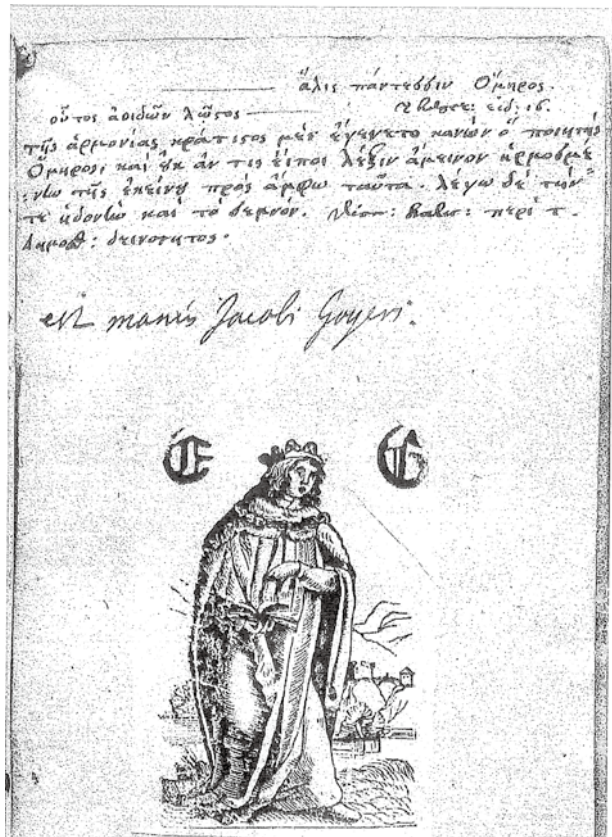 ἅλις πάντεσσιν Ὅμηρος.
οὗτος ἀοιδῶν λῷστος εἰδ: 16.
τῆς ἁρμονίας κράτιστος μὲν ἐγένετο κανὼν ὁ ποιητὴς
Ὅμηρος, καὶ οὐκ ἄν τις εἴποι λέξιν ἄμεινον ἡρμοσμέ-
νην τῆς ἐκείνου πρὸς ἄμφω ταῦτα. λέγω δὲ τήν
τε ἡδονὴν καὶ τὸ σεμνόν. περὶ τ.
Δημοσθ: δεινότητος.
est manus Jacobi Goyeri.
E G